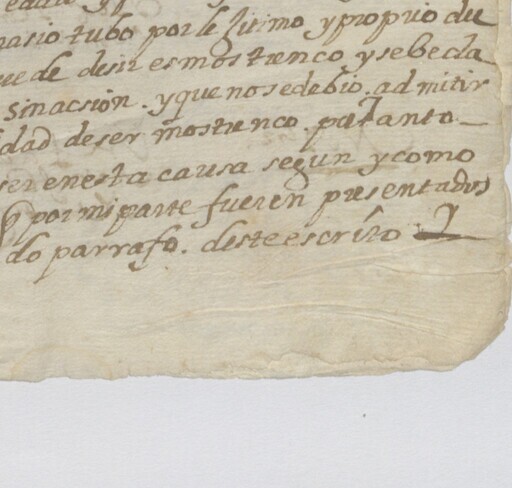 nasio tubo por lexitimo y proprio du
ue de desir es mostrenco y se be cla
sinacsion. y que no se debio. admitir
dad de ser mostrenco. pa tanto
ser en esta causa segun y como
por mi parte fueren presentados
do parrafo. deste escrito